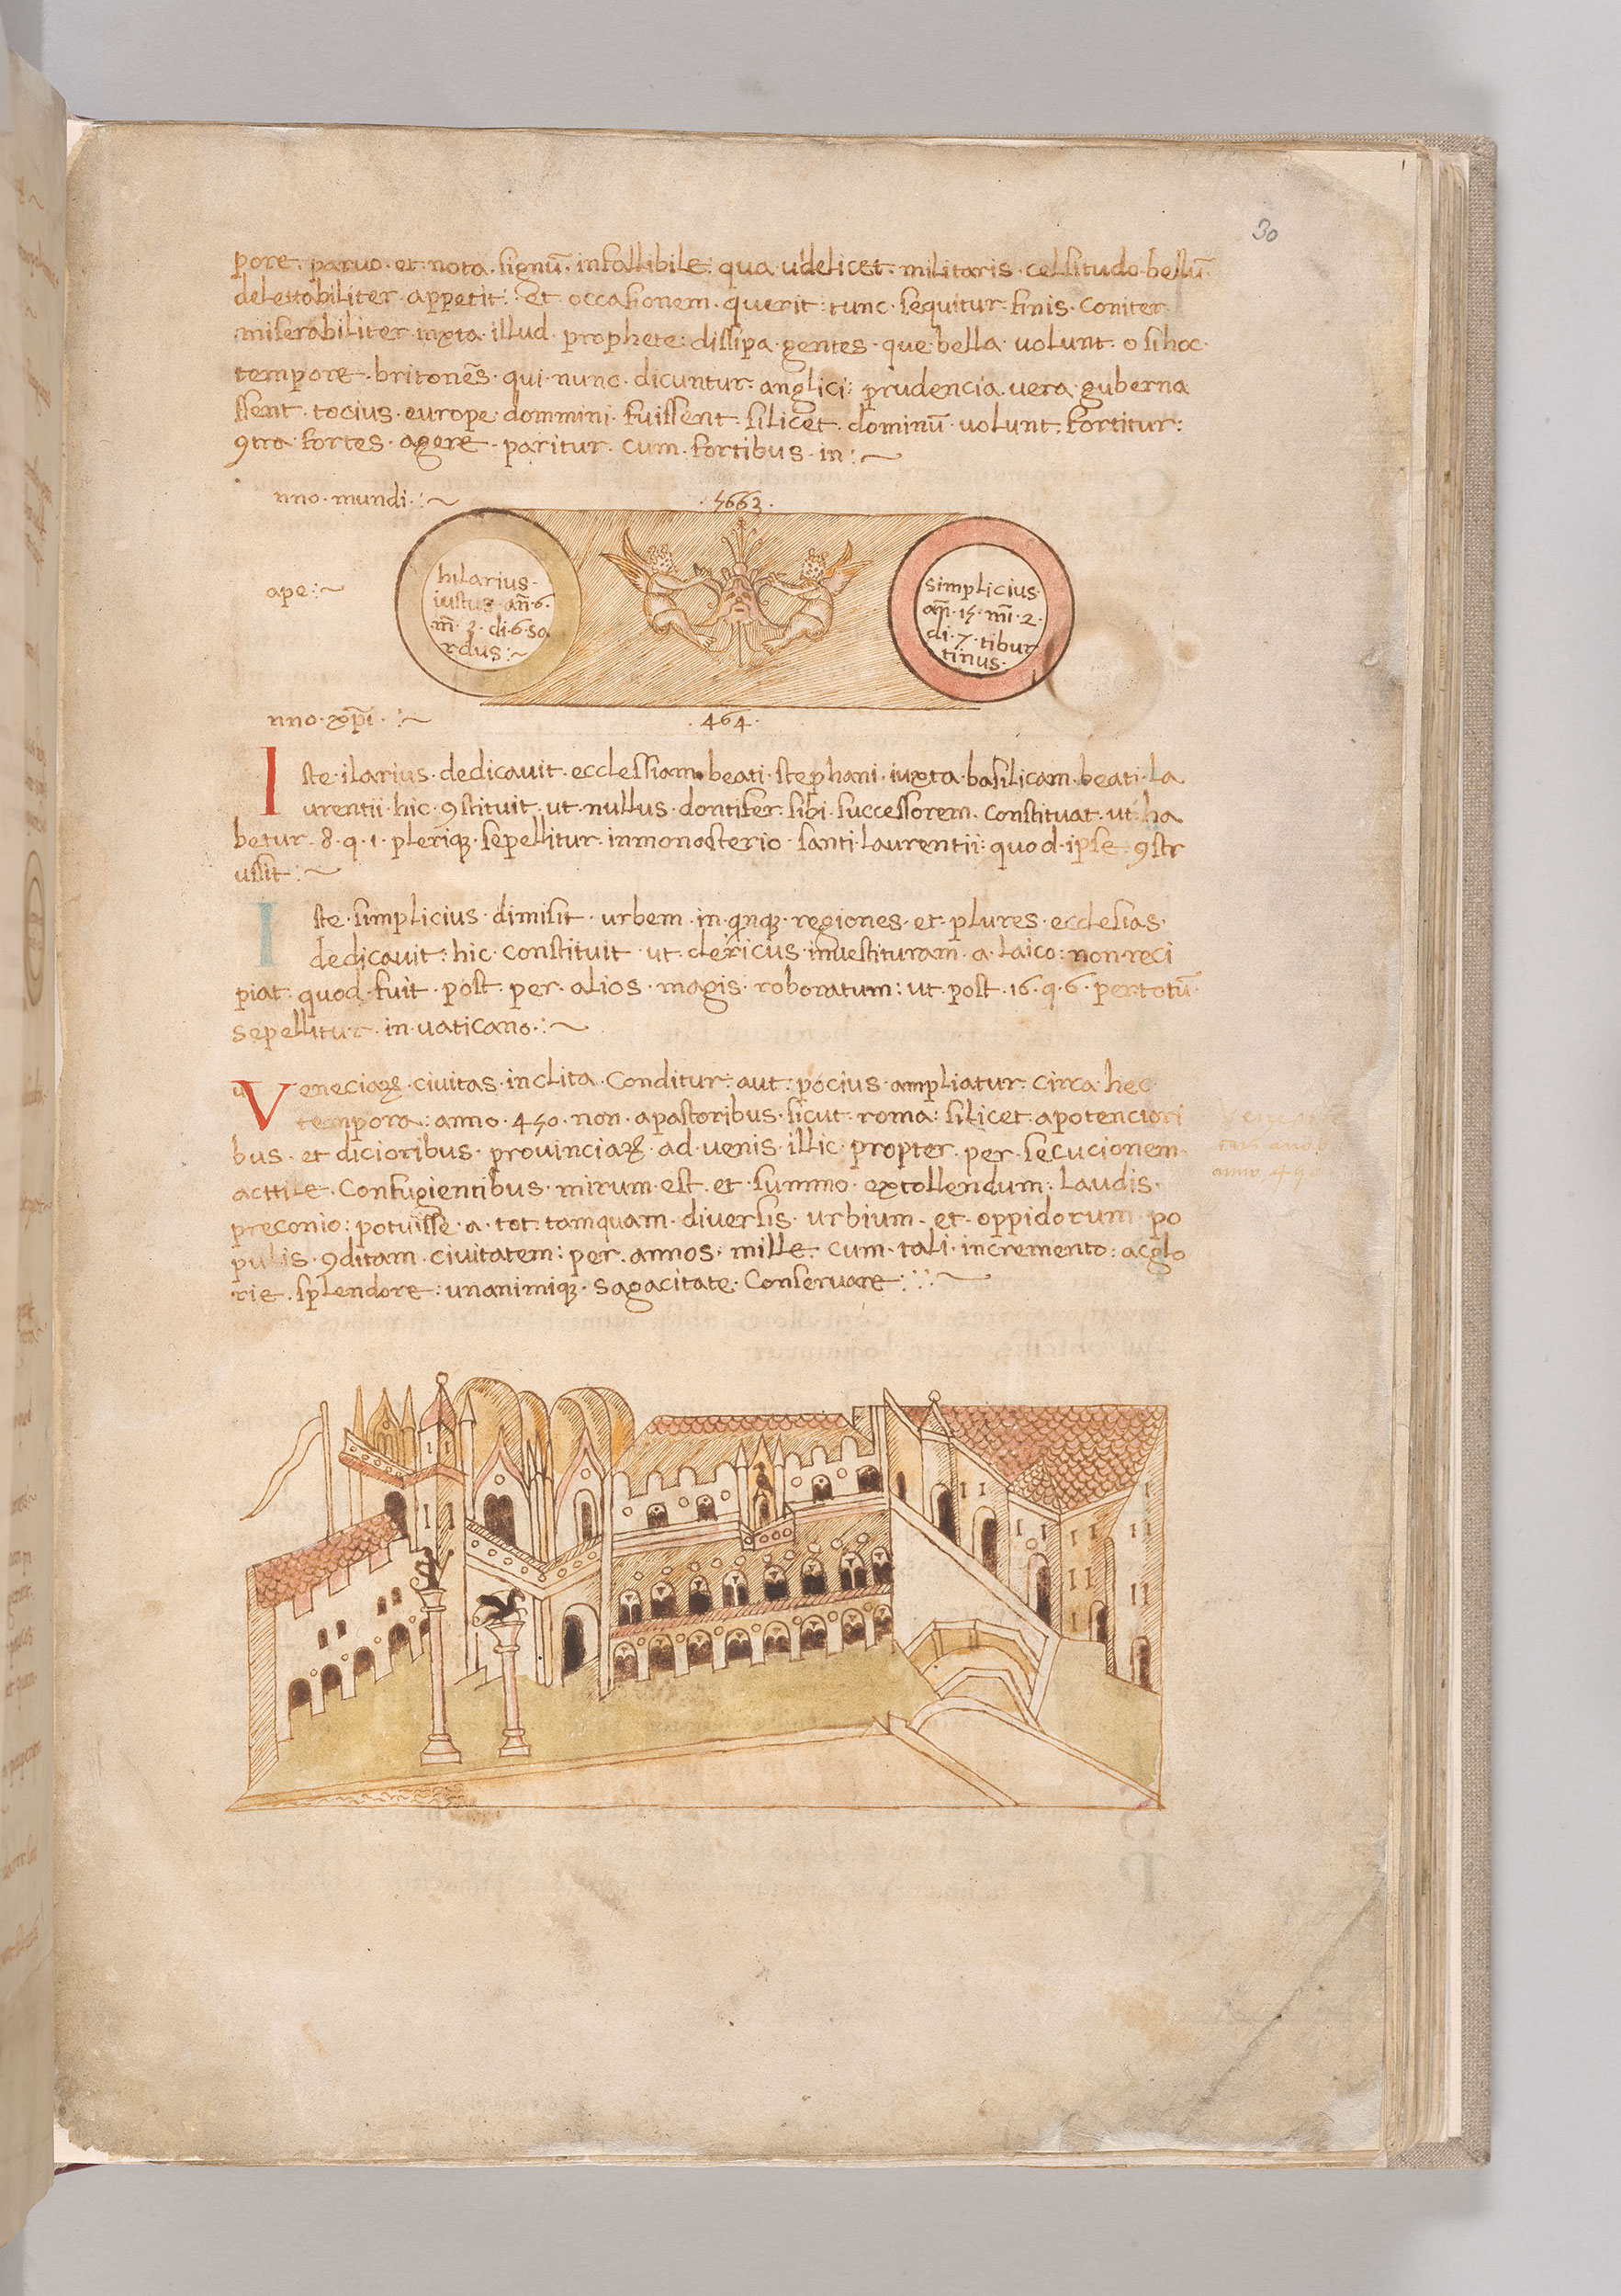 30
pore · paruo · et · nota · signū · infallibile : qua · uidelicet · militaris · celsitudo · bellū ·
delettabiliter · appetit : et occasionem · querit : tunc · sequitur · finis · coniter
miserabiliter · iuxta · illud · prophete : dissipa · gentes · que · bella · uolunt · o si hoc ·
tempore · britonēs · qui · nunc · dicuntur : anglici : prudencia · uera · guberna
ssent · tocius · europe · dommini · fuissent · silicet · dominū · uolunt · fortitur :
9tra · fortes · agere · paritur · cum · fortibus · in : ~
nno · mundi · : ~ · 5663 ·
ape : ~
hilarius ·
iustus · añ · 6 ·
m̄ · 3 · di · 6 · sa
rdus : ~
simplicius ·
añ · 15 · m̄ · 2 ·
di · 7 · tibur
tinus ·
nno · xp̄i · : ~ · 464 ·
Iste · ilarius · dedicauit · ecclessiam · beati · stephani · iuxta · basilicam · beati · la
urentii · hic · 9stituit · ut · nullus · dontifex · sibi · successorem · constituat · ut · ha
betur · 8 · q · 1 · plerique · sepellitur · in monasterio · santi · laurentii : quod · ipse · 9str
ussit : ~
Iste · simplicius · dimisit · urbem · in · qnque · regiones · et · plures · ecclesias ·
dedicauit : hic · constituit · ut · clericus · inuestituram · a · laico : non · reci
piat · quod · fuit · post · per · alios · magis · roboratum : ut · post · 16 · q · 6 · per totū ·
sepellitur · in · uaticano · : ~
Veneciaꝝ · ciuitas · inclita · Conditur : aut : pocius · ampliatur · circa · hec
tempora : anno · 450 · non · a pastoribus · sicut · roma : silicet · a potenciori
bus · et dicioribus · prouinciaꝝ · ad · uenis · illic · propter · per · secucionem ·
acttile · Confugientibus · mirum · est · et · summo · extollendum · laudis ·
preconio : potuisse · a · tot · tamquam · diuersis · urbium · et · oppidorum · po
pulis · 9ditam · ciuitatem : per · annos · mille · cum · tali · incremento : ac glo
rie · splendore : unanimique · sagacitate · Conseruare : ~